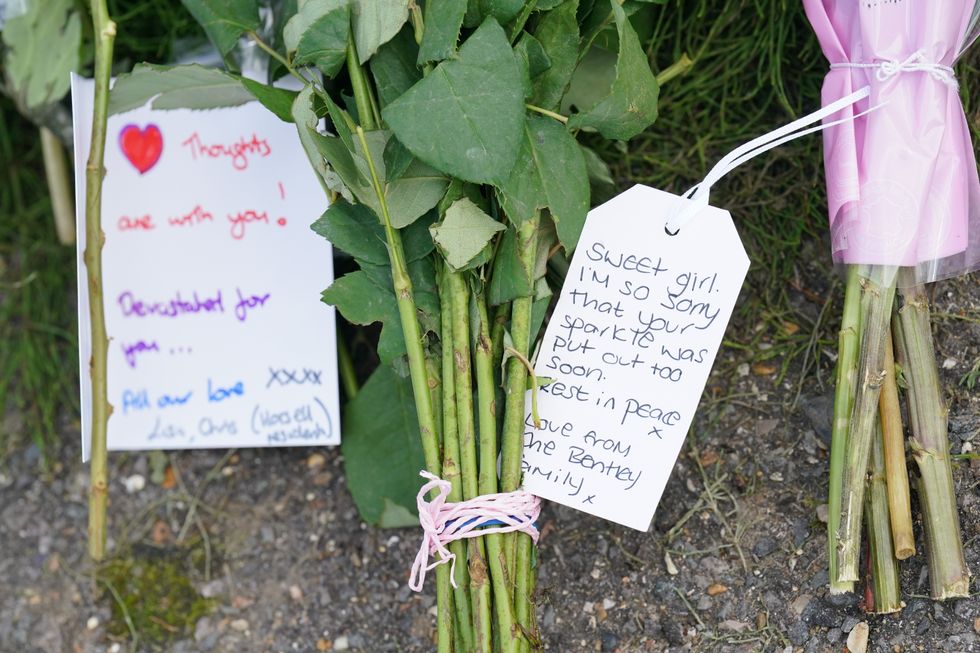 Thoughts
are with you!
Devastated for
you...
All our love xxxx
Lisa, Chris (Horsell
resident)
Sweet girl.
I'm so sorry
that your
sparkle was
put out too
soon.
Rest in peace
x
Love from
The Bentley
Family x